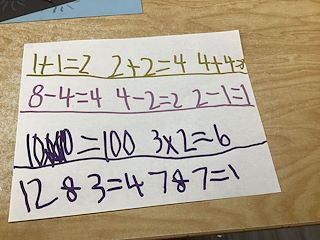 1+1=2 2+2=4 4+4=8
8-4=4 4-2=2 2-1=1
=100 3x2=6
12 8 3=4 7 8 7=1